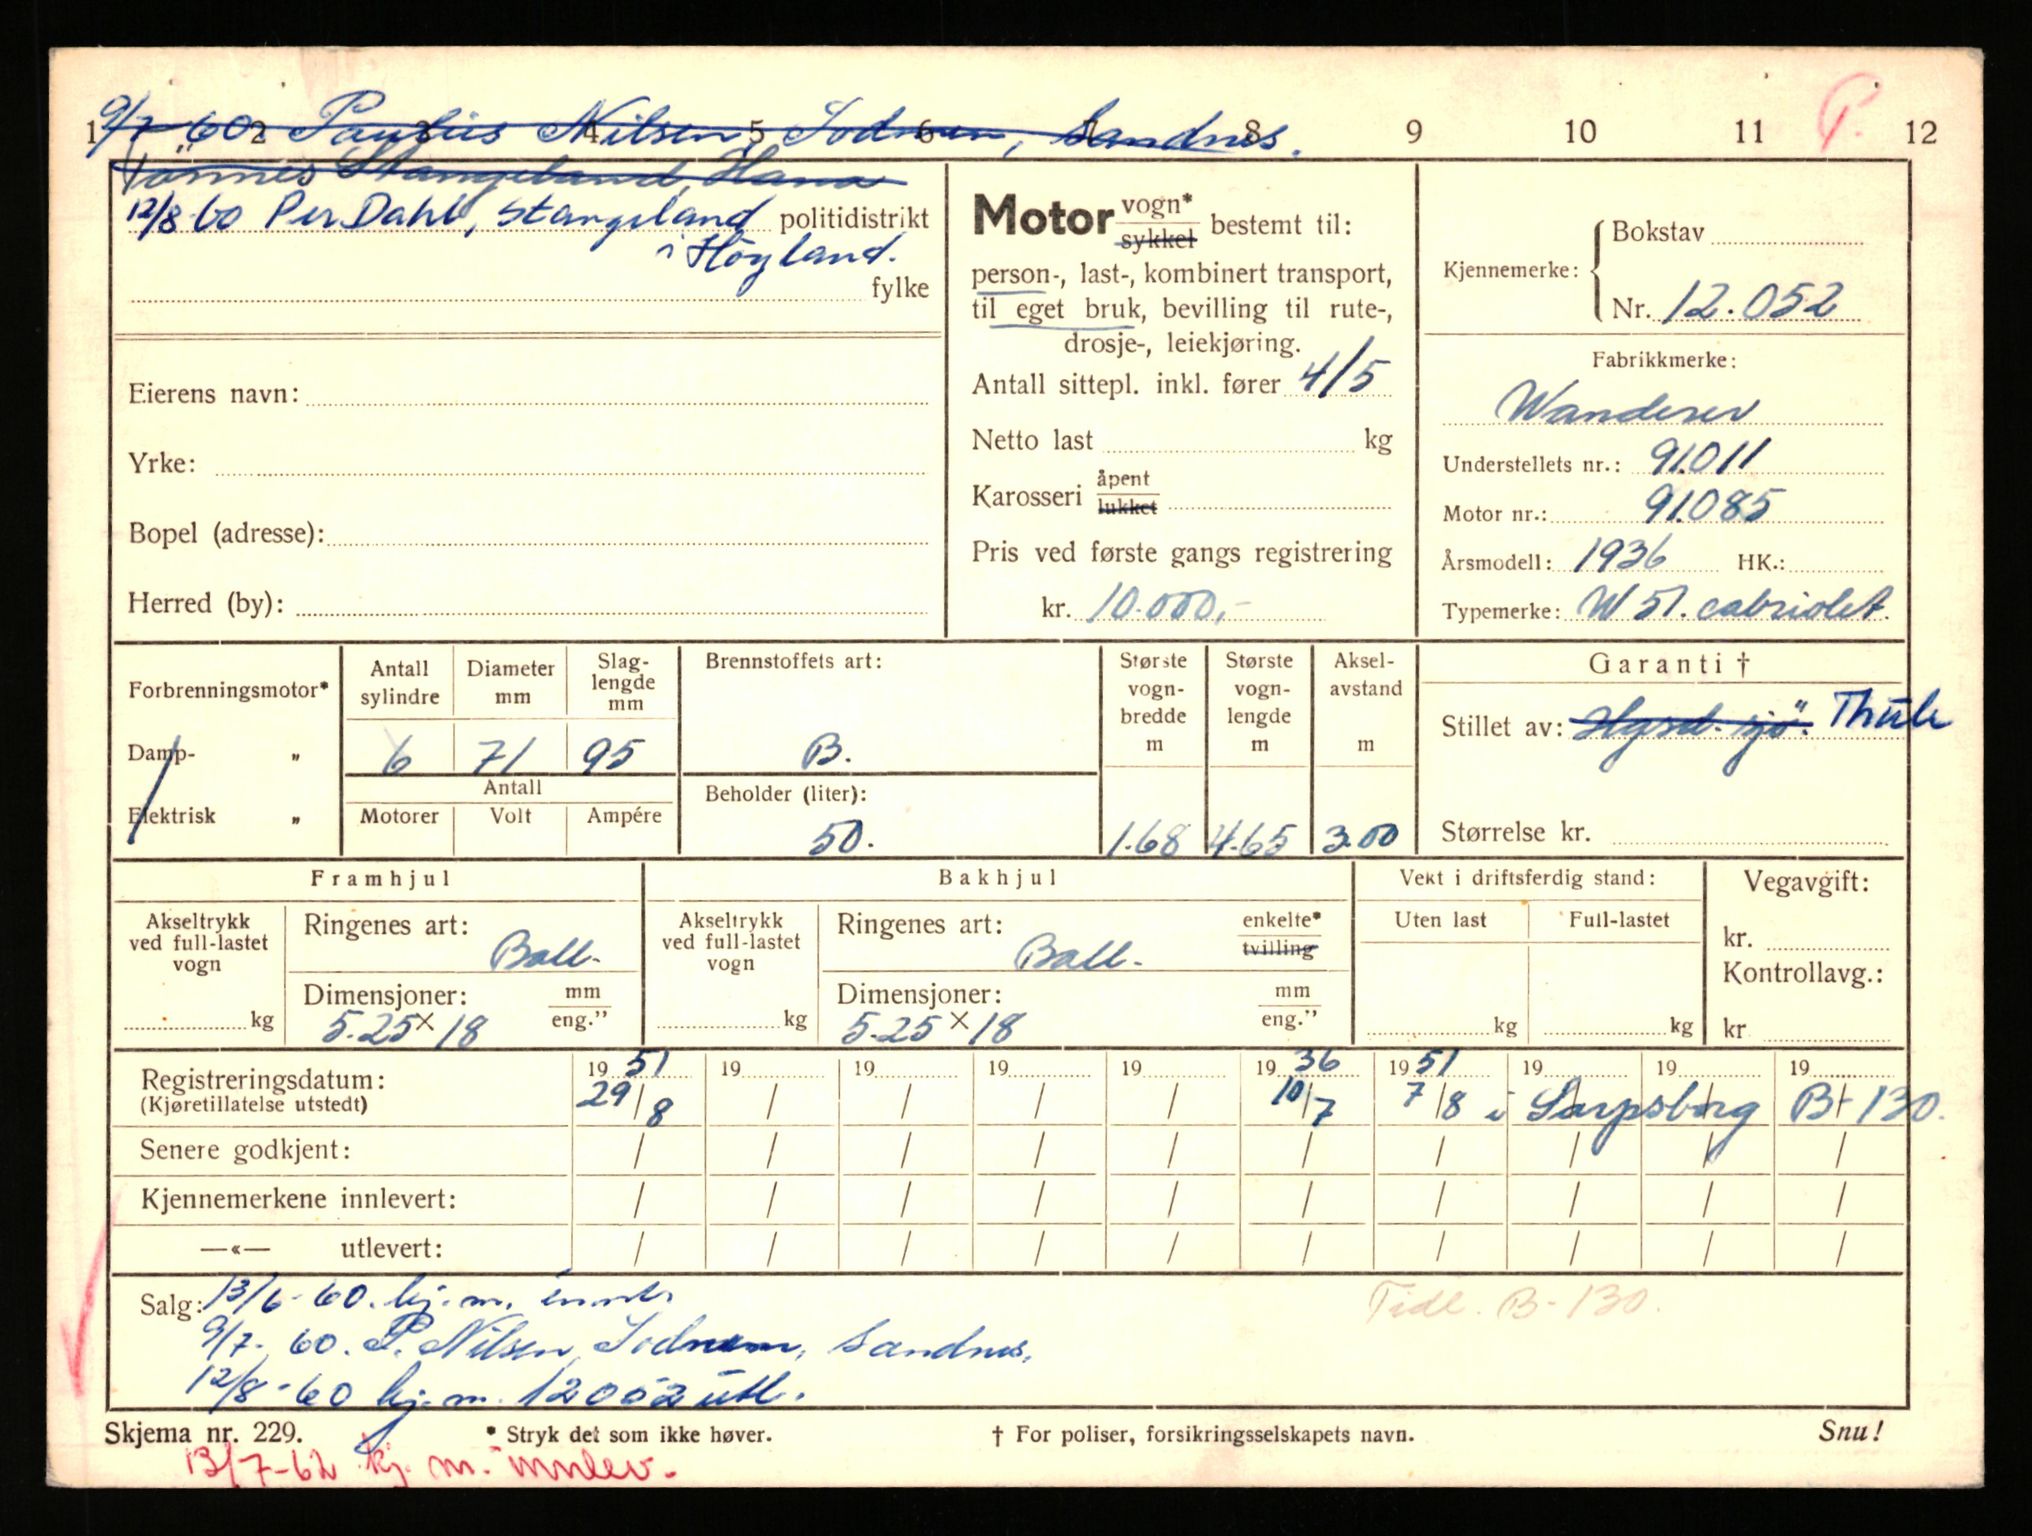 1 2 3 4 5 6 7 8 9 10 11 12
P.
9/7-60 Paulus Nilsen, Sodnem, Sandnes.
Tönnes Stangeland, Hana
12/8-60 Per Dahl, Stangeland politidistrikt
i Höyland.
fylke
Eierens navn:
Yrke:
Bopel (adresse):
Herred (by):
Motor vogn* / sykkel bestemt til:
person-, last-, kombinert transport,
til eget bruk, bevilling til rute-,
drosje-, leiekjøring.
Antall sittepl. inkl. fører 4/5
Netto last kg
Karosseri åpent / lukket
Pris ved første gangs registrering
kr. 10.000,-
Kjennemerke: Bokstav
Nr. 12.052
Fabrikkmerke:
Wanderer
Understellets nr.: 91.011
Motor nr.: 91.085
Årsmodell: 1936 HK.:
Typemerke: W 51. cabriolet.
Forbrenningsmotor*
Damp- „
Elektrisk „
Antall sylindre 6
Diameter mm 71
Slag-lengde mm 95
Antall
Motorer Volt Ampére
Brennstoffets art:
B.
Beholder (liter):
50.
Største vogn-bredde m 1.68
Største vogn-lengde m 4.65
Aksel-avstand m 3.00
Garanti †
Stillet av: Hgsd. sjö. Thule
Størrelse kr.
Framhjul
Akseltrykk ved full-lastet vogn
kg
Ringenes art:
Ball.
Dimensjoner: mm / eng."
5.25 x 18
Bakhjul
Akseltrykk ved full-lastet vogn
kg
Ringenes art: enkelte* / tvilling
Ball.
Dimensjoner: mm / eng."
5.25 x 18
Vekt i driftsferdig stand:
Uten last Full-lastet
kg kg
Vegavgift:
kr.
Kontrollavg.:
kr
Registreringsdatum: 1951 19 19 19 19 1936 1951 19 19 19
(Kjøretillatelse utstedt) 29/8 / / / / 10/7 7/8 i Sarpsborg B-130.
Senere godkjent: / / / / / / / / / /
Kjennemerkene innlevert: / / / / / / / / / /
—«— utlevert: / / / / / / / / / /
Salg: 13/6-60. kj.m. innlev.
Tidl. B-130.
9/7-60. P. Nilsen, Sodnem, Sandnes.
12/8-60 kj.m. 12052 utl.
Skjema nr. 229. * Stryk det som ikke høver. † For poliser, forsikringsselskapets navn. Snu!
13/7-62 kj. m. innlev.